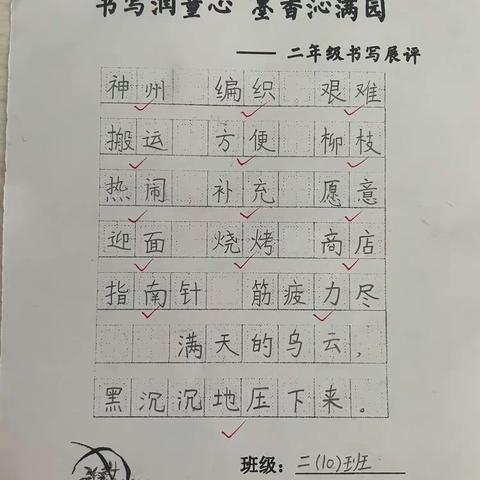 书写润童心 墨香沁满园
—— 二年级书写展评
神州 编织 艰难
搬运 方便 柳枝
热闹 补充 愿意
迎面 烧烤 商店
指南针 筋疲力尽
满天的乌云，
黑沉沉地压下来。
班级：二(10)班